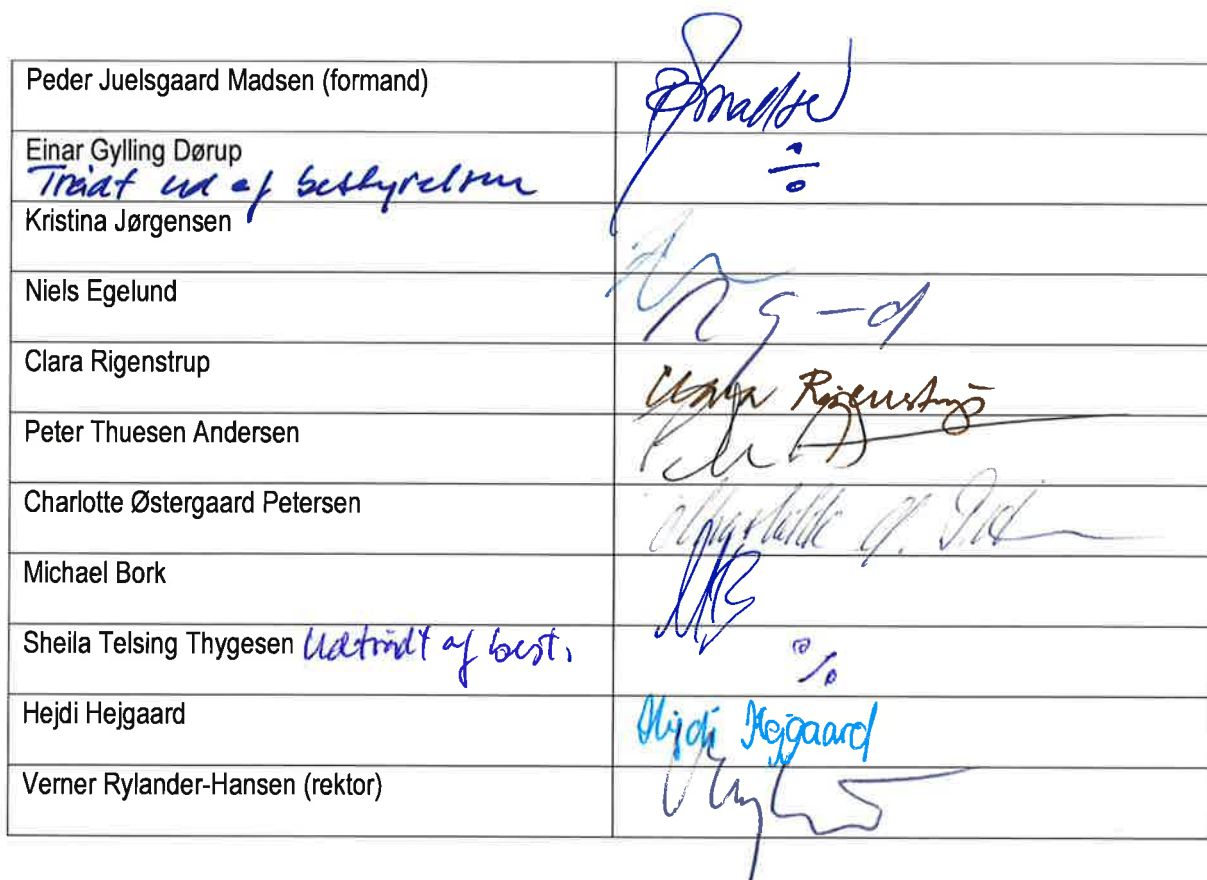 Peder Juelsgaard Madsen (formand)
Einar Gylling Dørup
Trådt ud af bestyrelsen
÷
Kristina Jørgensen
Niels Egelund
Clara Rigenstrup
Clara Rigenstrup
Peter Thuesen Andersen
Charlotte Østergaard Petersen
Michael Bork
MB
Sheila Telsing Thygesen Udtrådt af best.
÷
Hejdi Hejgaard
Hejdi Hejgaard
Verner Rylander-Hansen (rektor)